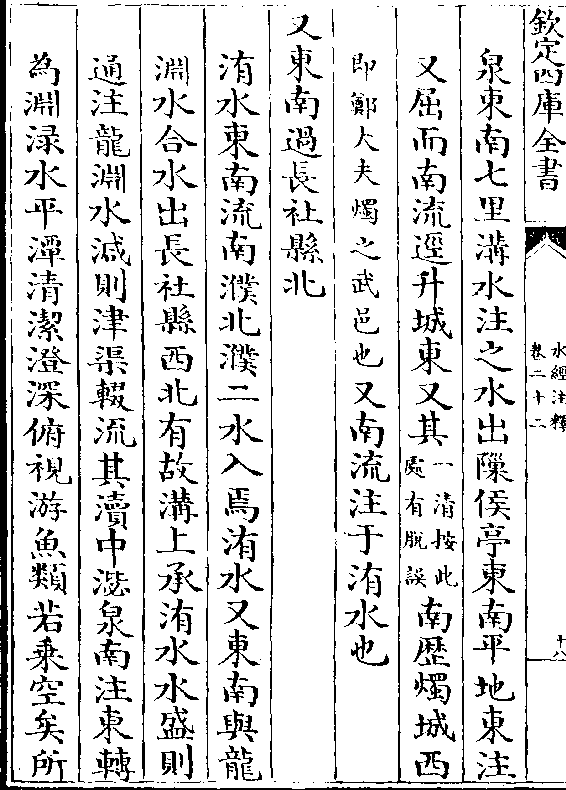 欽定四庫全書
水經注釋
卷二十二
十八
泉東南七里溝水注之水出隟侯亭東南平地東注
又屈而南流逕升城東又其一清按此處有脫誤南歷燭城西
即鄭大夫燭之武邑也又南流注于洧水也
又東南過長社縣北
洧水東南流南濮北濮二水入焉洧水又東南與龍
淵水合水出長社縣西北有故溝上承洧水水盛則
通注龍淵水減則津渠輟流其瀆中㵩泉南注東轉
為淵淥水平潭清潔澄深俯視游魚類若乘空矣所